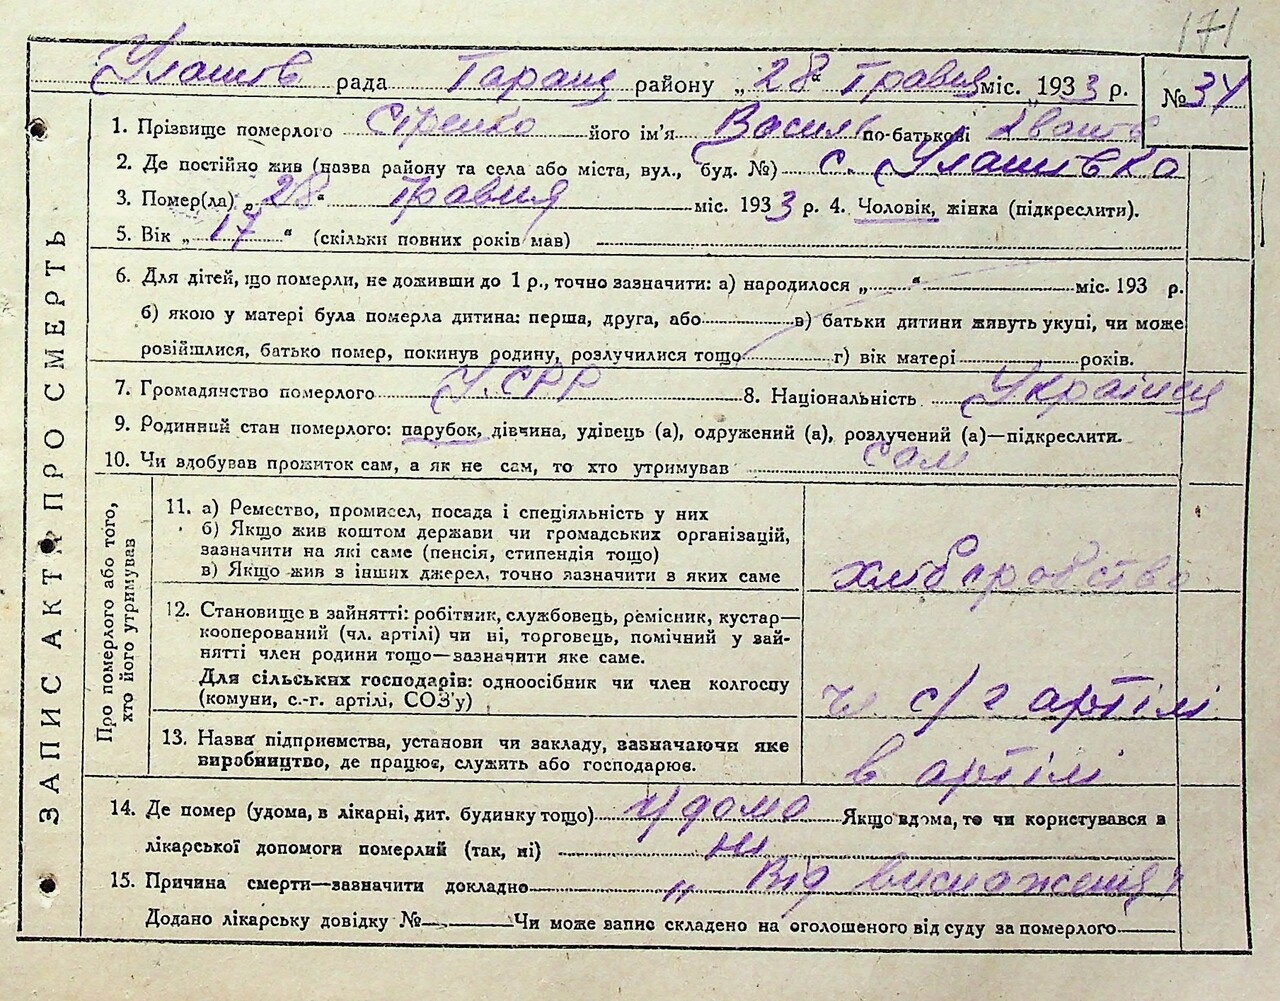 171
Улашів рада Таращ району „28“ Травня міс. 1933 р. № 34
1. Прізвище померлого Сіренко його ім'я Василь по-батькові Іванов
2. Де постійно жив (назва району та села або міста, вул., буд. №) с. Улашівка
3. Помер(ла) „28“ травня міс. 1933 р. 4. Чоловік, жінка (підкреслити).
5. Вік „17“ (скільки повних років мав)
6. Для дітей, що померли, не доживши до 1 р., точно зазначити: а) народилося „ “ міс. 193 р.
б) якою у матері була померла дитина: перша, друга, або в) батьки дитини живуть укупі, чи може
розійшлися, батько помер, покинув родину, розлучилися тощо г) вік матері років.
7. Громадянство померлого У.СРР 8. Національність Українец
9. Родинний стан померлого: парубок, дівчина, удівець (а), одружений (а), розлучений (а)—підкреслити.
10. Чи здобував прожиток сам, а як не сам, то хто утримував сам
ЗАПИС АКТА ПРО СМЕРТЬ
Про померлого або того,
хто його утримував
11. а) Ремество, промисел, посада і спеціяльність у них
б) Якщо жив коштом держави чи громадських організацій,
зазначити на які саме (пенсія, стипендія тощо)
в) Якщо жив з інших джерел, точно зазначити в яких саме
хліберобство
12. Становище в зайнятті: робітник, службовець, ремісник, кустар—
кооперований (чл. артілі) чи ні, торговець, помічний у зай-
нятті член родини тощо—зазначити яке саме.
Для сільських господарів: одноосібник чи член колгоспу
(комуни, с.-г. артілі, СОЗ'у)
чл с/г артілі
13. Назва підприємства, установи чи закладу, зазначаючи яке
виробництво, де працює, служить або господарює.
в артілі
14. Де помер (удома, в лікарні, дит. будинку тощо) удома Якщо вдома, то чи користувався в
лікарської допомоги померлий (так, ні) ні
15. Причина смерти—зазначити докладно „ Від виснаження
Додано лікарську довідку № Чи може запис складено на оголошеного від суду за померлого